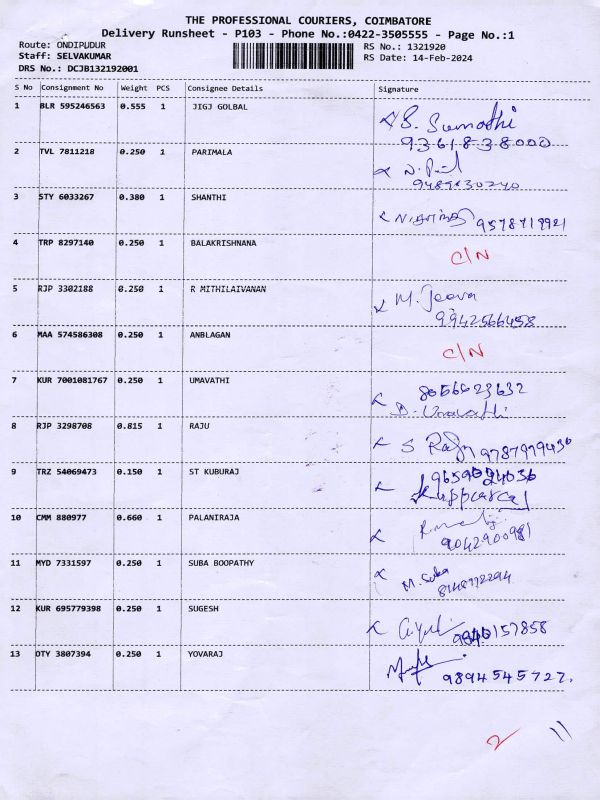 THE PROFESSIONAL COURIERS, COIMBATORE
Delivery Runsheet - P103 - Phone No.:0422-3505555 - Page No.:1
Route: ONDIPUDUR
RS No.: 1321920
Staff: SELVAKUMAR
RS Date: 14-Feb-2024
DRS No.: DCJB132192001
S No Consignment No Weight PCS Consignee Details Signature
1 BLR 595246563 0.555 1 JIGJ GOLBAL
S. Sumathi
9361838000
2 TVL 7811218 0.250 1 PARIMALA
3 STY 6033267 0.380 1 SHANTHI
4 TRP 8297140 0.250 1 BALAKRISHNANA C/N
5 RJP 3302188 0.250 1 R MITHILAIVANAN
M. Jeeva
9942566458
6 MAA 574586308 0.250 1 ANBLAGAN C/N
7 KUR 7001081767 0.250 1 UMAVATHI
8 RJP 3298708 0.815 1 RAJU S Raju
9 TRZ 54069473 0.150 1 ST KUBURAJ
10 CMM 880977 0.660 1 PALANIRAJA
9042900981
11 MYD 7331597 0.250 1 SUBA BOOPATHY
M. Suba
12 KUR 695779398 0.250 1 SUGESH
13 OTY 3807394 0.250 1 YOVARAJ
9894545727.
2 11